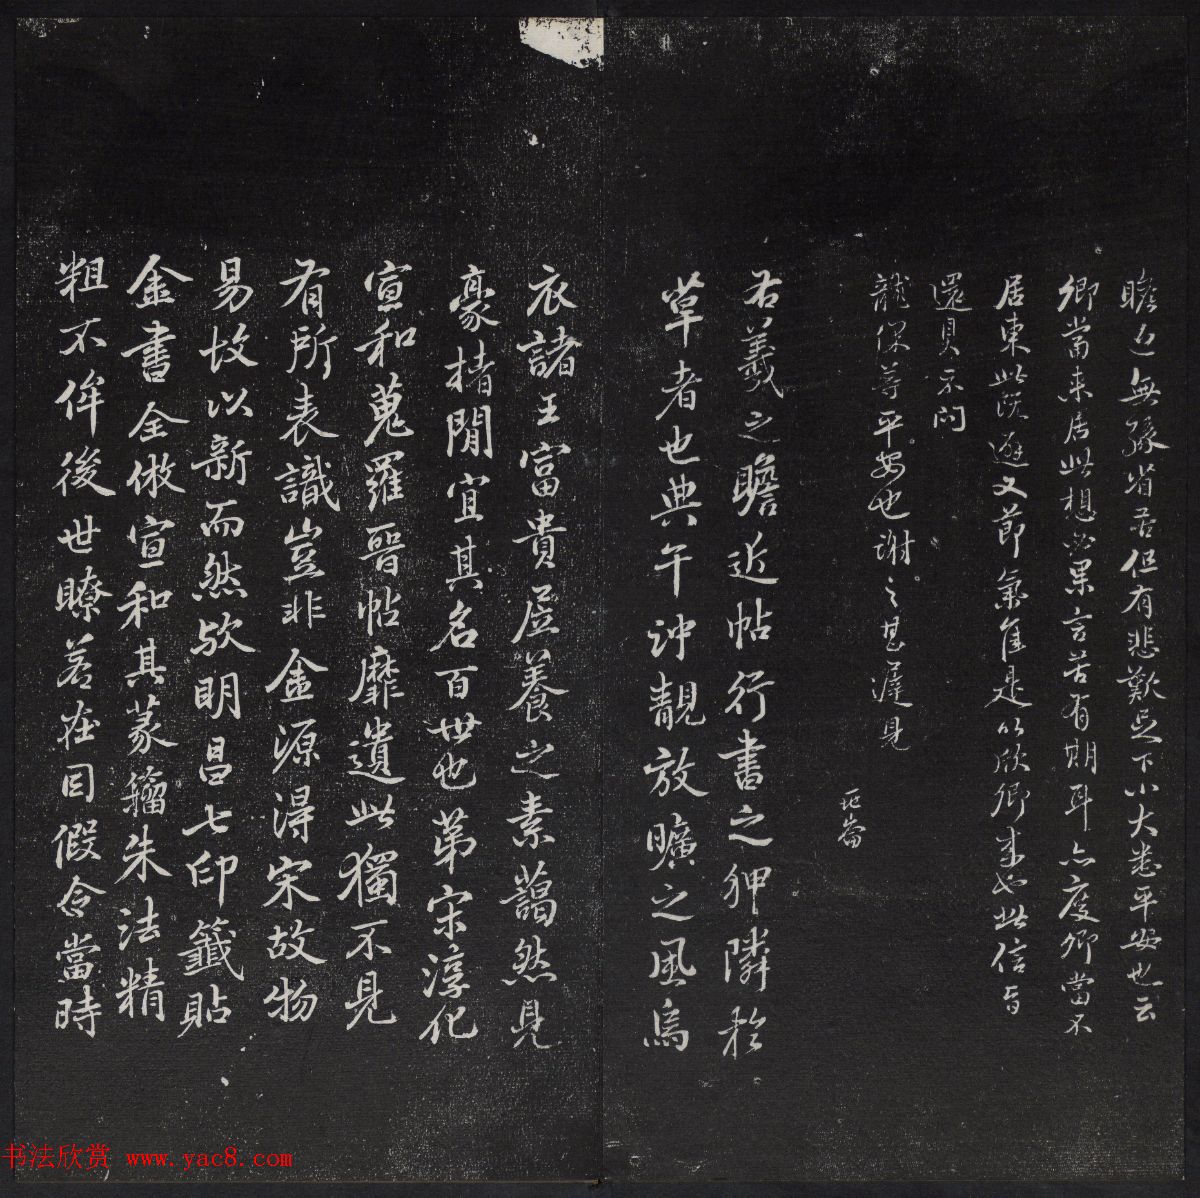 瞻近無緣省苦但有悲歎足下小大悉平安也云
卿當來居此想必果言苦有期耳亦度卿當不
居東此既避又節氣佳是以欣卿來也此信旨
還具示問
龍保等平安也謝之甚遲見
右羲之瞻近帖行書之狎隣於
草者也典午沖靚放曠之風烏
衣諸王富貴居養之素藹然見
豪楮閒宜其名百世也第宋淳化
宣和蒐羅晉帖靡遺此獨不見
有所表識豈非金源得宋故物
易故以新而然歟明昌七印籤貼
金書全倣宣和其篆籀朱法精
粗不侔後世瞭若在目假令當時
书法欣赏 www.yac8.com